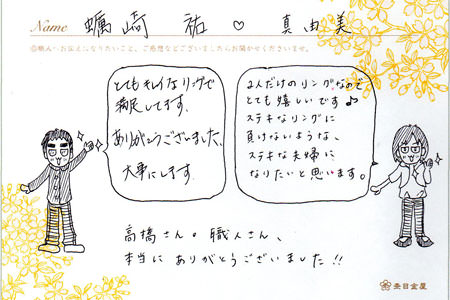 Name 蠣崎 祐 ♡ 真由美
◎職人へお伝えになりたいこと、ご感想などございましたらお聞かせくださいませ。
とてもキレイなリングで
満足してます。
ありがとうございました。
大事にします。
2人だけのリングなので
とても嬉しいです♪
ステキなリングに
負けないような、
ステキな夫婦に
なりたいと思います。
高橋さん。職人さん、
本当にありがとうございました!!
杢目金屋